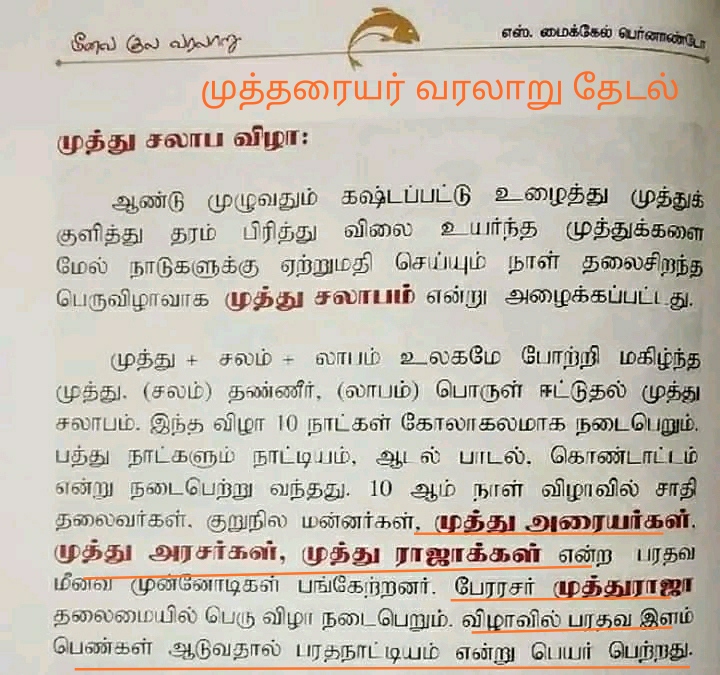 மீனவ குல வரலாறு
எஸ். மைக்கேல் பெர்னாண்டோ
முத்தரையர் வரலாறு தேடல்
முத்து சலாப விழா:
ஆண்டு முழுவதும் கஷ்டப்பட்டு உழைத்து முத்துக்
குளித்து தரம் பிரித்து விலை உயர்ந்த முத்துக்களை
மேல் நாடுகளுக்கு ஏற்றுமதி செய்யும் நாள் தலைசிறந்த
பெருவிழாவாக முத்து சலாபம் என்று அழைக்கப்பட்டது.
முத்து + சலம் + லாபம் உலகமே போற்றி மகிழ்ந்த
முத்து. (சலம்) தண்ணீர், (லாபம்) பொருள் ஈட்டுதல் முத்து
சலாபம். இந்த விழா 10 நாட்கள் கோலாகலமாக நடைபெறும்.
பத்து நாட்களும் நாட்டியம், ஆடல் பாடல், கொண்டாட்டம்
என்று நடைபெற்று வந்தது. 10 ஆம் நாள் விழாவில் சாதி
தலைவர்கள். குறுநில மன்னர்கள், முத்து அரையர்கள்.
முத்து அரசர்கள், முத்து ராஜாக்கள் என்ற பரதவ
மீனவ முன்னோடிகள் பங்கேற்றனர். பேரரசர் முத்துராஜா
தலைமையில் பெரு விழா நடைபெறும். விழாவில் பரதவ இளம்
பெண்கள் ஆடுவதால் பரதநாட்டியம் என்று பெயர் பெற்றது.